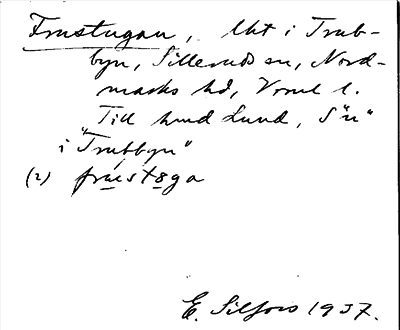 Frustugan, lht i Trub-
byn, Sillerudssn, Nord-
marks hd, Vrml l.
Till hmd Lund, S"n"
i "Trubbyn"
(2)
E. Silfors 1937.